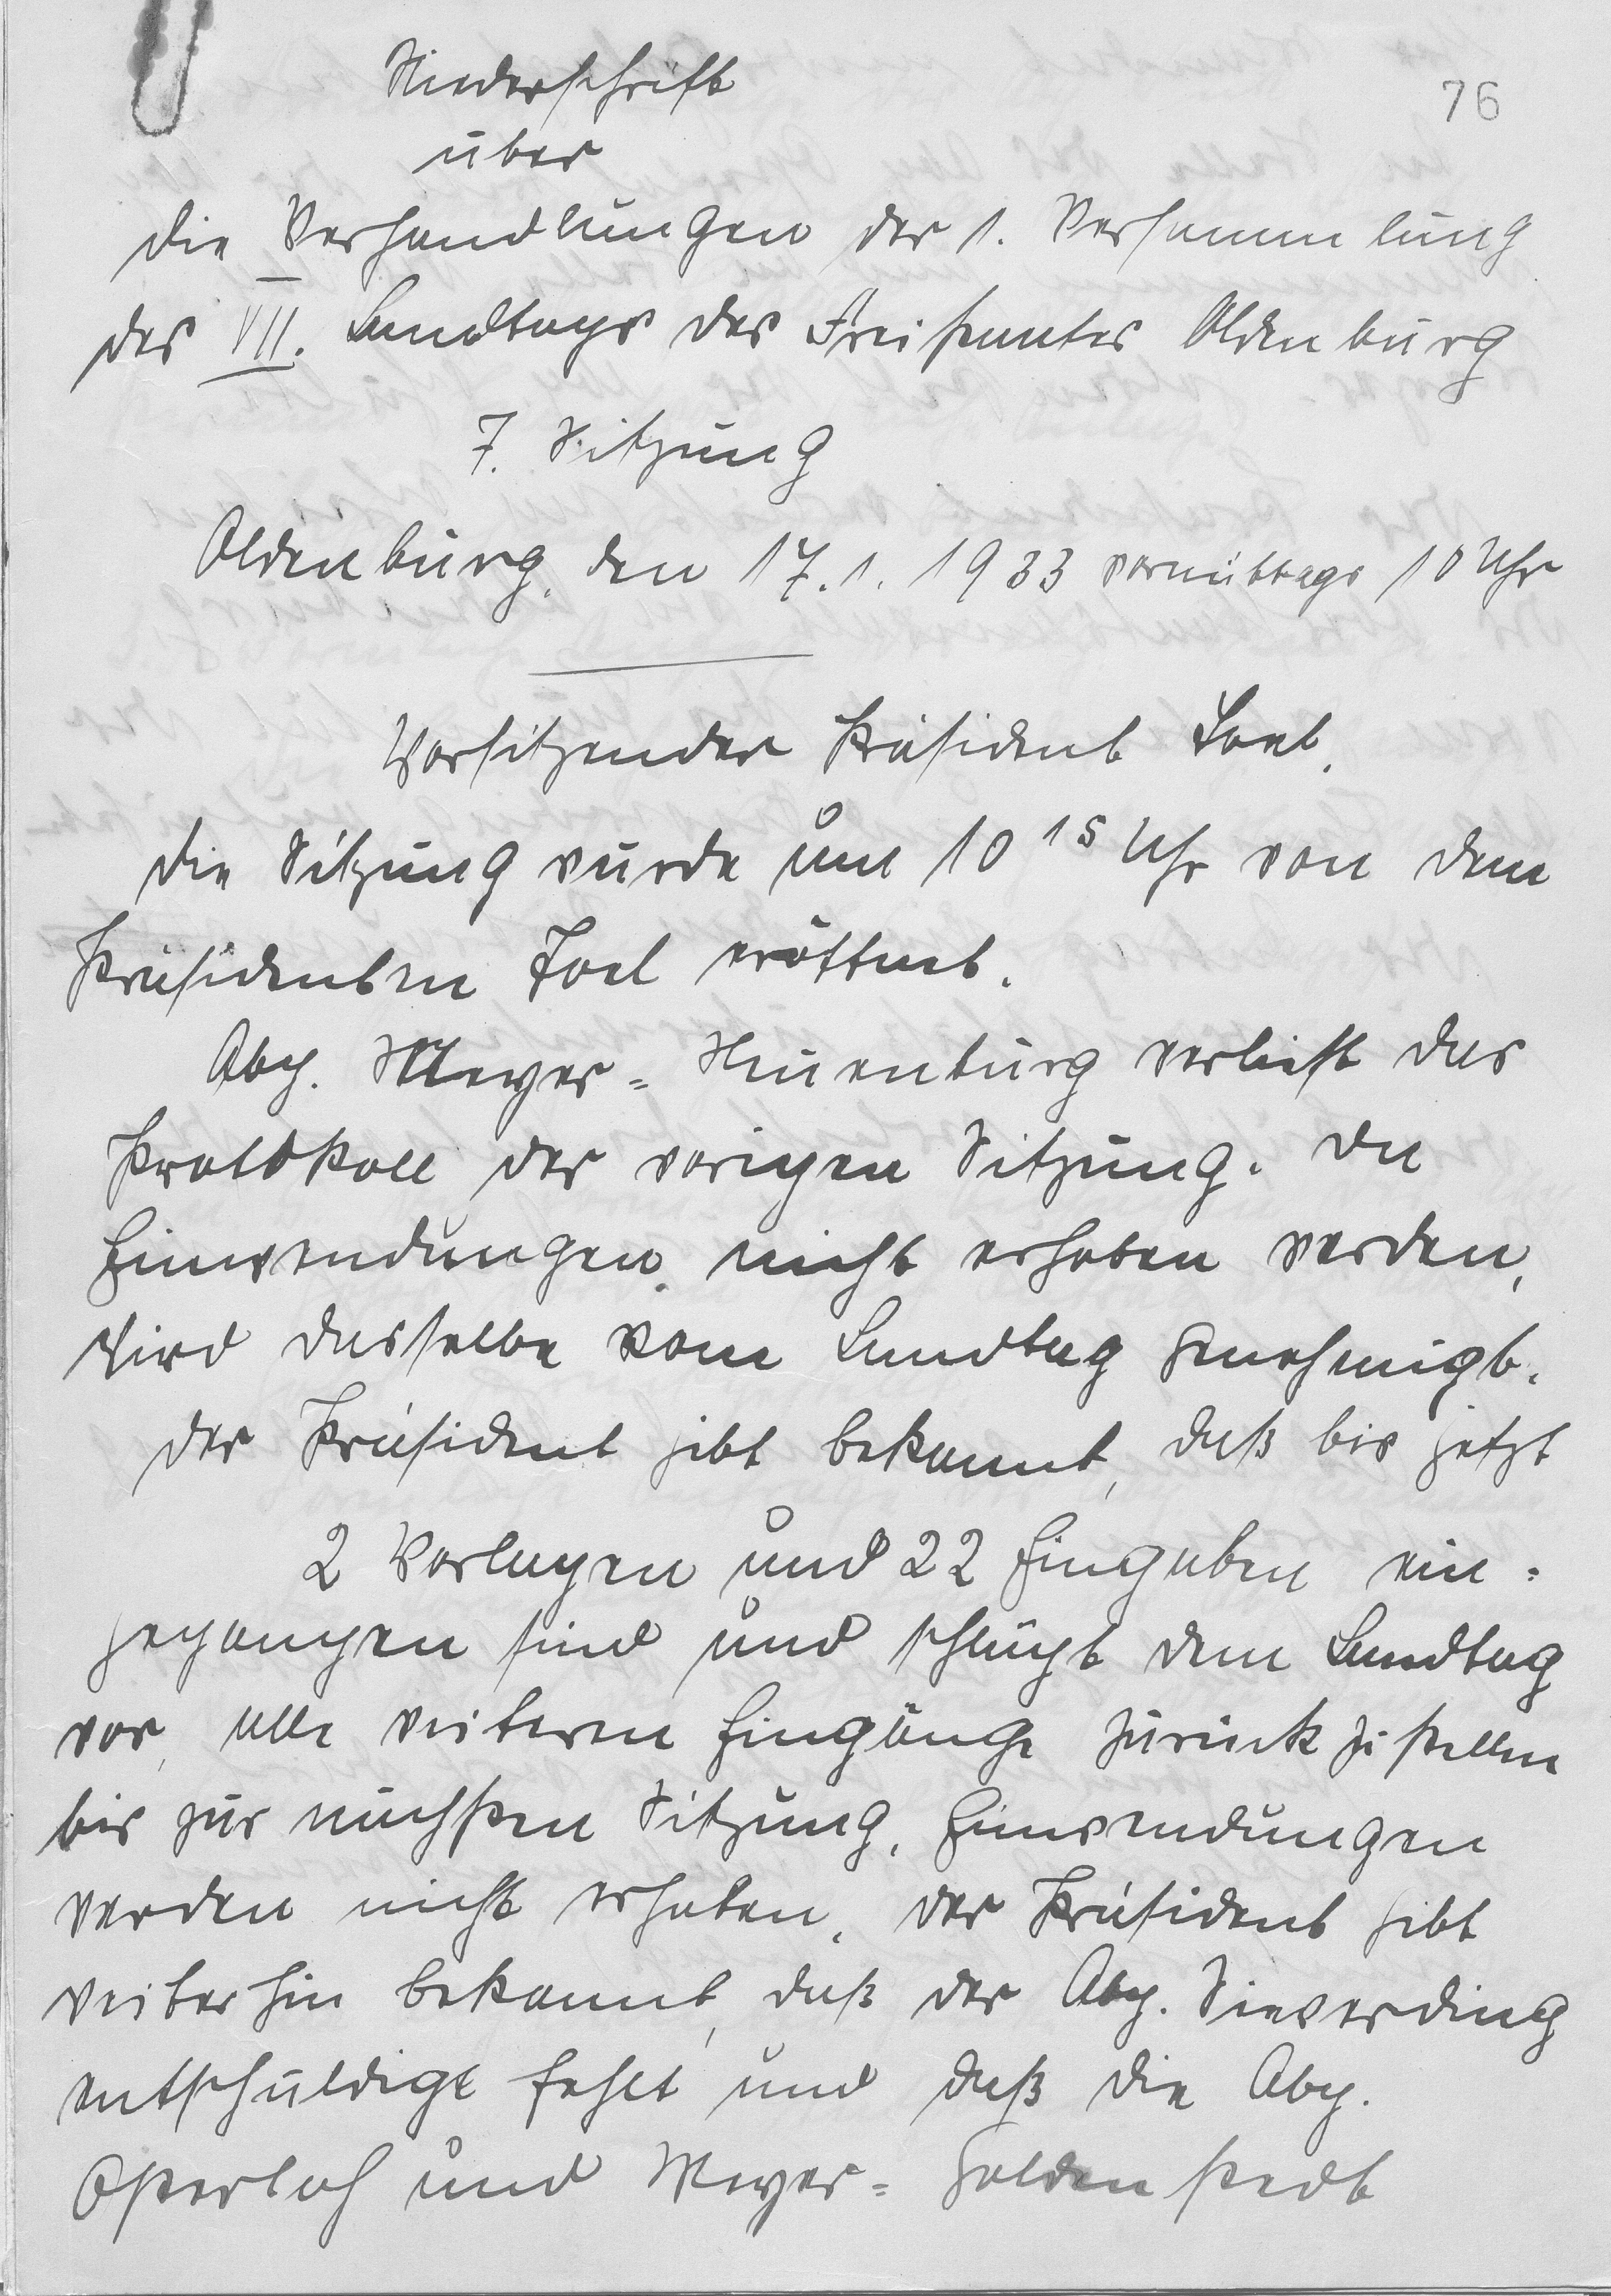 76
Niederschrift
über
die Verhandlungen der 1. Versammlung
des VII. Landtags des Freistaates Oldenburg
7. Sitzung
Oldenburg, den 17. 1. 1933 vormittags 10 Uhr
Vorsitzender Präsident Joel.
Die Sitzung wurde um 10 15 Uhr von dem
Präsidenten Joel eröffnet.
Abg. Meyer=Neuenburg verliest das
Protokoll der vorigen Sitzung. Da
Einwendungen nicht erhoben werden,
wird dasselbe vom Landtag genehmigt.
Der Präsident gibt bekannt, daß bis jetzt
2 Vorlagen und 22 Eingaben ein=
gegangen sind und schlägt dem Landtag
vor, alle weiteren Eingänge zurück zu stellen
bis zur nächsten Sitzung. Einwendungen
werden nicht erhoben. Der Präsident gibt
weiterhin bekannt, daß der Abg. Sieverding
entschuldigt fehlt und daß die Abg.
Osterloh und Meyer=Goldenstedt